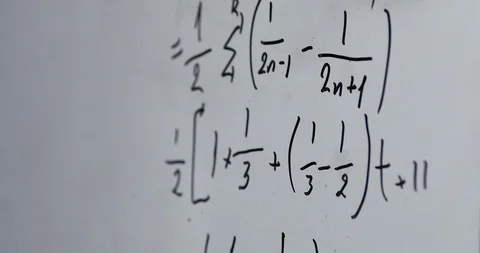 = 1/2 Σ (1/2n-1 - 1/2n+1)
1/2 [1 + 1/3 + (1/3 - 1/2) +